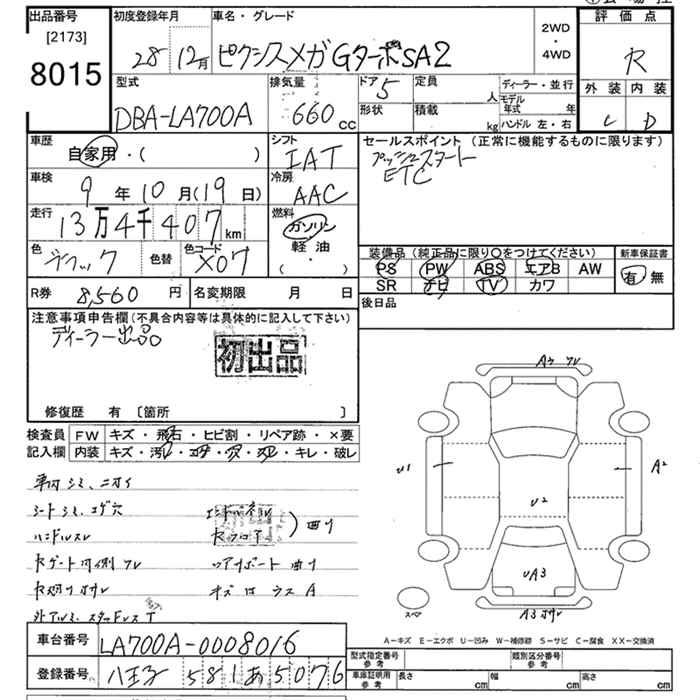 出品番号 [2173] 8015
初度登録年月 28 12月
車名・グレード ピクシスメガ GターボSA2
2WD ・ 4WD
評価点 R
外装 内装 D
型式 DBA-LA700A
排気量 660 cc
ドア 5
形状
定員 人
積載 kg
ディーラー・並行
モデル年式 年
ハンドル 左・右
車歴 自家用・( )
シフト IAT
セールスポイント (正常に機能するものに限ります)
プッシュスタート
ETC
車検 9年 10月(19日)
冷房 AAC
走行 13万4千407 km
燃料 ガソリン
軽油
・( )
色 ブラック 色替 色コード X07
装備品 (純正品に限り○をつけてください)
PS PW ABS エアB AW
SR ナビ TV カワ
新車保証書 有 無
R券 8,560 円
名変期限 月 日
後日品
注意事項申告欄 (不具合内容等は具体的に記入して下さい)
ディーラー出品
初出品
修復歴 有 〔箇所 〕
検査員 FW キズ・飛石・ヒビ割・リペア跡・×要
記入欄 内装 キズ・汚レ・コゲ・穴・スレ・キレ・破レ
車内シミ、ニオイ
シートシミ、コゲ穴
ハンドルスレ
曲り
キズ 小 ウス A
A3
U1
A2
U2
UA3
A3
スペア
A-キズ E-エクボ U-凹み W-補修跡 S-サビ C-腐食 XX-交換済
車台番号 LA700A-0008016
登録番号 八王子 581 あ 5076
型式指定番号 参考
類別区分番号 参考
車庫証明用 参考 長さ cm 幅 cm 高さ cm